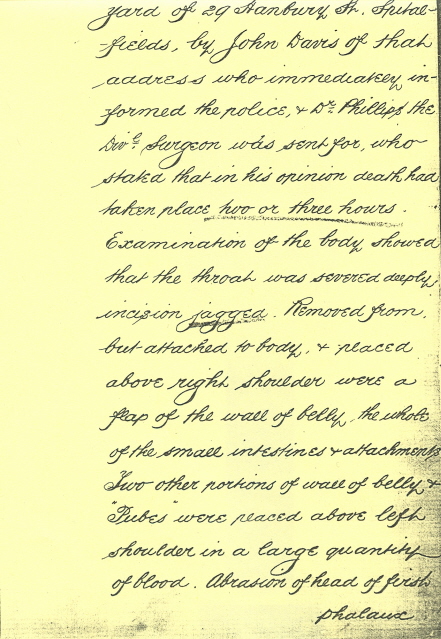 yard of 29 Hanbury St. Spital-
fields, by John Davis of that
address who immediately in-
formed the police, & Dr. Phillips the
Divl. Surgeon was sent for, who
stated that in his opinion death had
taken place two or three hours.
Examination of the body showed
that the throat was severed deeply
incision jagged. Removed from,
but attached to body, & placed
above right shoulder were a
flap of the wall of belly, the whole
of the small intestines & attachments
Two other portions of wall of belly &
"Pubes" were placed above left
shoulder in a large quantity
of blood. Abrasion of head of first
phalanx